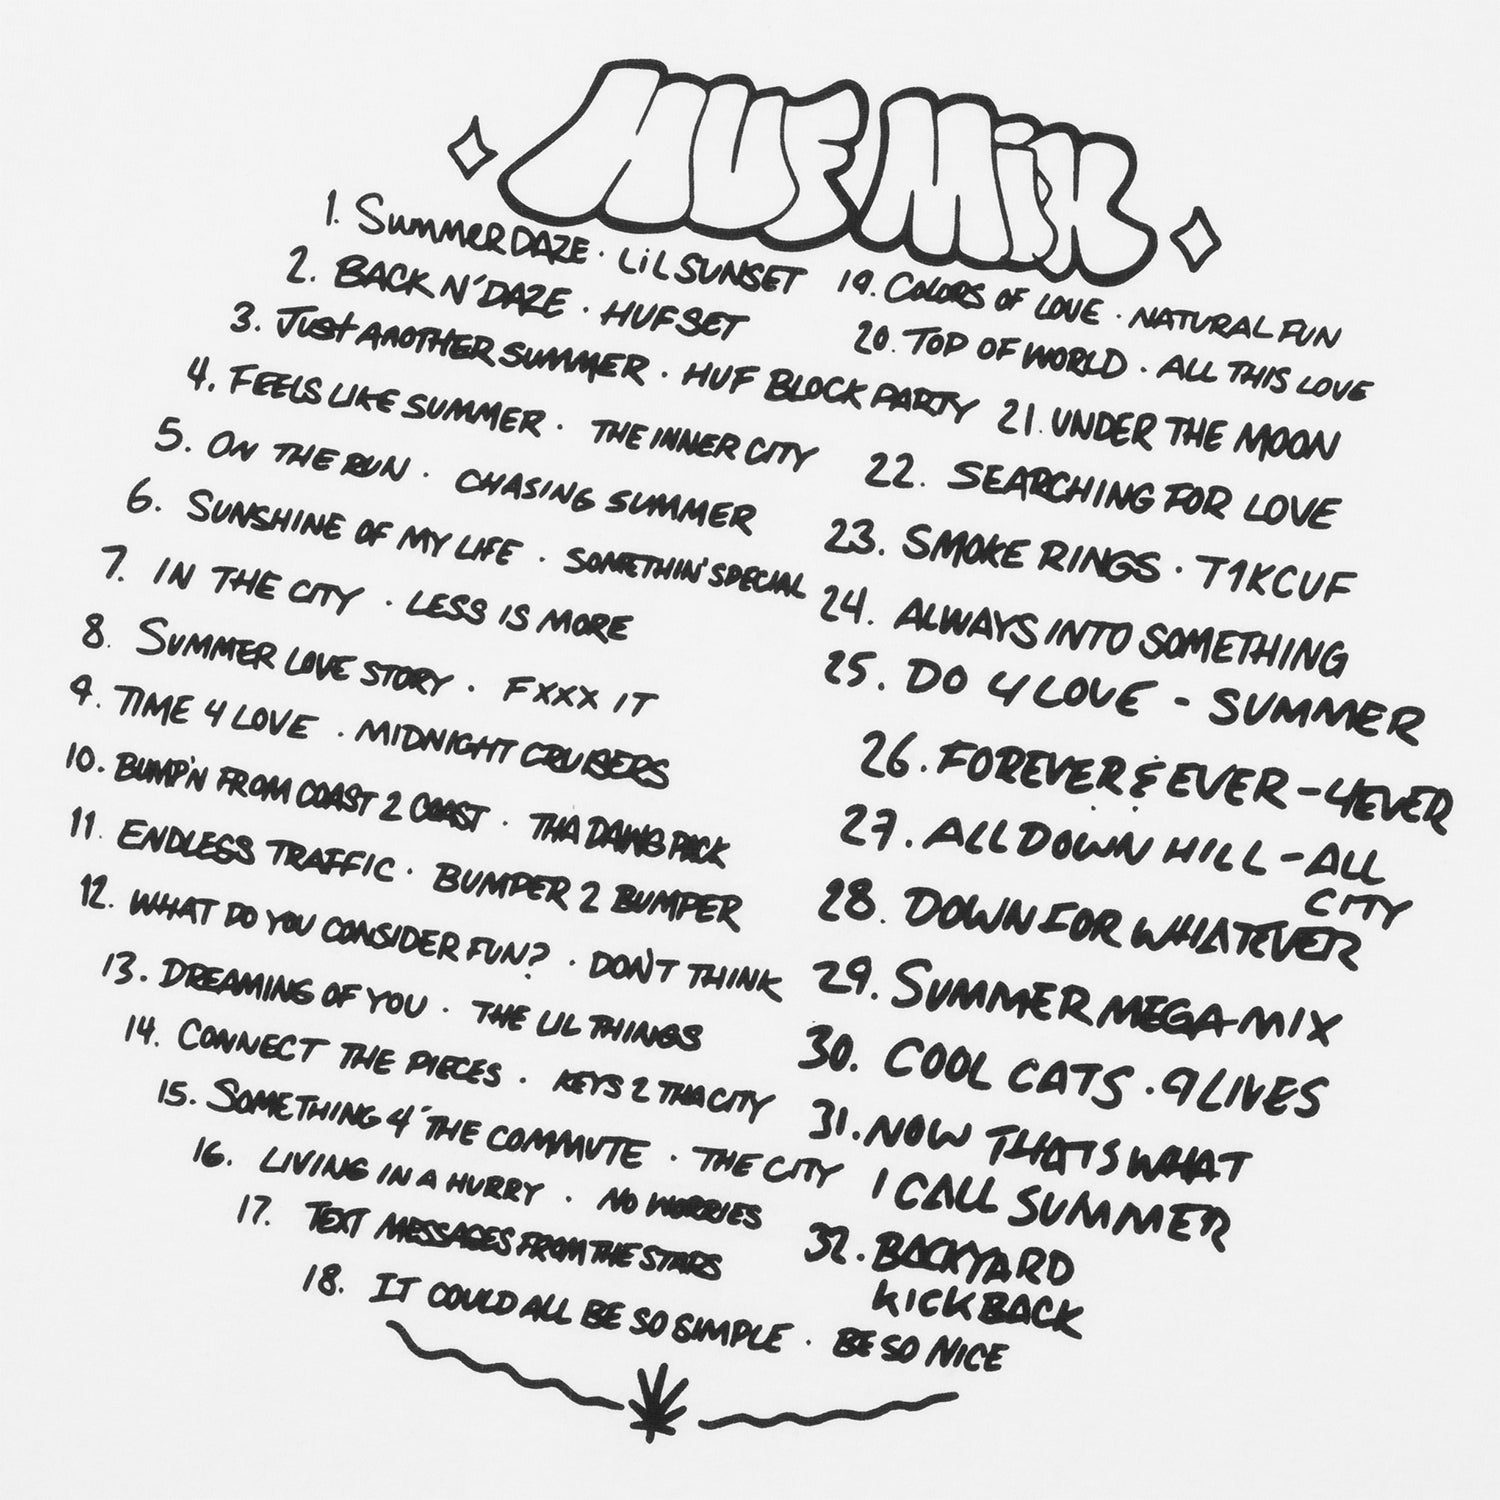 HUF MiX
1. SUMMER DAZE · LiL SUNSET
2. BACK N' DAZE · HUF SET
3. JUST ANOTHER SUMMER · HUF BLOCK PARTY
4. FEELS LIKE SUMMER · THE INNER CITY
5. ON THE RUN · CHASING SUMMER
6. SUNSHINE OF MY LIFE · SOMETHIN' SPECIAL
7. IN THE CITY · LESS IS MORE
8. SUMMER LOVE STORY · FXXX IT
9. TIME 4 LOVE · MIDNIGHT CRUISERS
10. BUMP'N FROM COAST 2 COAST · THA DAWG PACK
11. ENDLESS TRAFFIC · BUMPER 2 BUMPER
12. WHAT DO YOU CONSIDER FUN? · DON'T THINK
13. DREAMING OF YOU · THE LIL THINGS
14. CONNECT THE PIECES · KEYS 2 THA CITY
15. SOMETHING 4' THE COMMUTE · THE CITY
16. LIVING IN A HURRY · NO WORRIES
17. TEXT MESSAGES FROM THE STARS
18. IT COULD ALL BE SO SIMPLE · BE SO NICE
19. COLORS OF LOVE · NATURAL FUN
20. TOP OF WORLD · ALL THIS LOVE
21. UNDER THE MOON
22. SEARCHING FOR LOVE
23. SMOKE RINGS · T1KCUF
24. ALWAYS INTO SOMETHING
25. DO 4 LOVE - SUMMER
26. FOREVER & EVER - 4EVER
27. ALL DOWN HILL - ALL
CITY
28. DOWN FOR WHATEVER
29. SUMMER MEGA-MIX
30. COOL CATS · 9 LIVES
31. NOW THATS WHAT
I CALL SUMMER
32. BACKYARD
KICKBACK